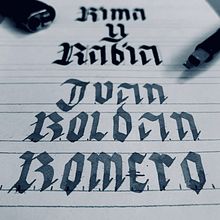 Rima
y
Rabia
Ivan
Roldan
Romero